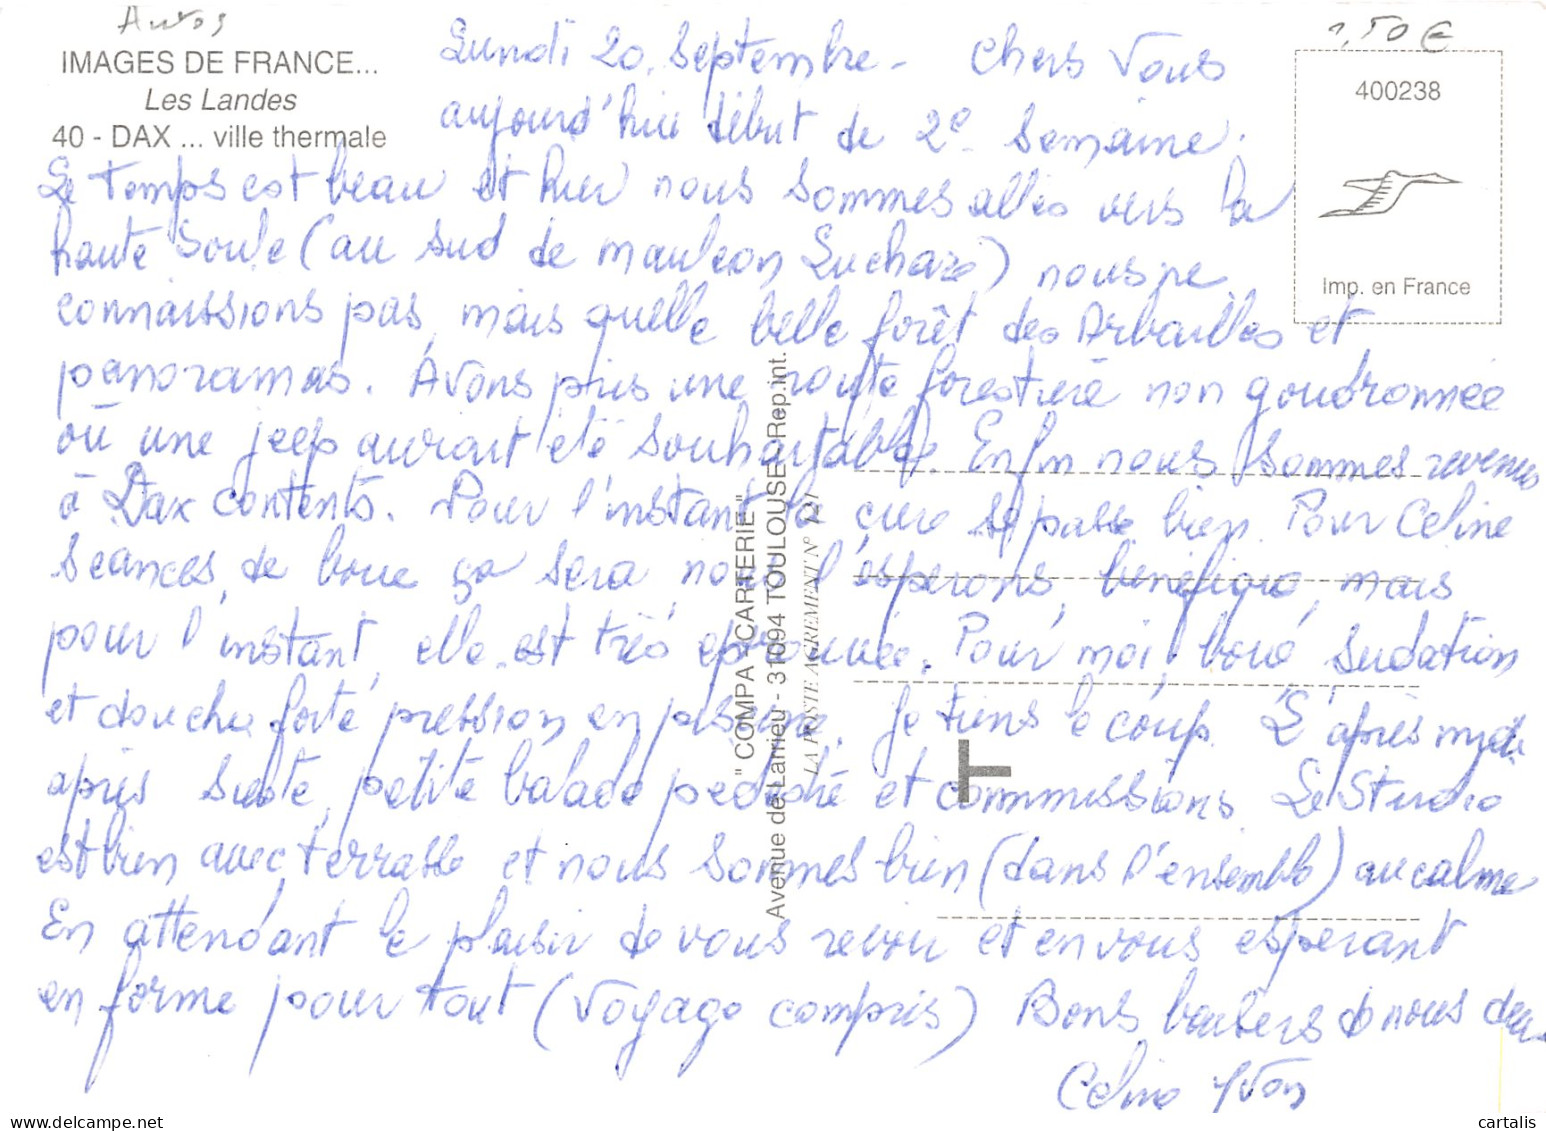 Autos
1,50€
IMAGES DE FRANCE...
Les Landes
40 - DAX ... ville thermale
400238
Imp. en France
Lundi 20. Septembre - Chers Vous
aujourd'hui début de 2e Semaine.
Le Temps est beau et hier nous sommes allés vers la
haute Soule (au sud de mauleon Licharre) nous ne
connaissions pas, mais quelle belle forêt des Arbailles et
panoramas. Avons pris une route forestière non goudronnée
où une jeep aurait été souhaitable. Enfin nous sommes revenus
à Dax contents. Pour l'instant la cure se passe bien. Pour Celine
séances de boue ça sera, nous l'espérons, bénéfique, mais
pour l'instant, elle est très éprouvée. Pour moi, boue sudation
et douche forte pression en piscine. Je tiens le coup. L'après midi
après sieste, petite balade pedestre et commissions. Le Studio
est bien avec terrasse et nous sommes bien (dans l'ensemble) au calme
En attendant le plaisir de vous revoir et en vous espérant
en forme pour tout (Voyage compris) Bons baisers de nous deux
Celine Yvon
" COMPA CARTERIE "
Avenue de Larrieu - 31094 TOULOUSE - Rep.int.
LA POSTE AGREMENT N°
T
© delcampe.net
cartalis